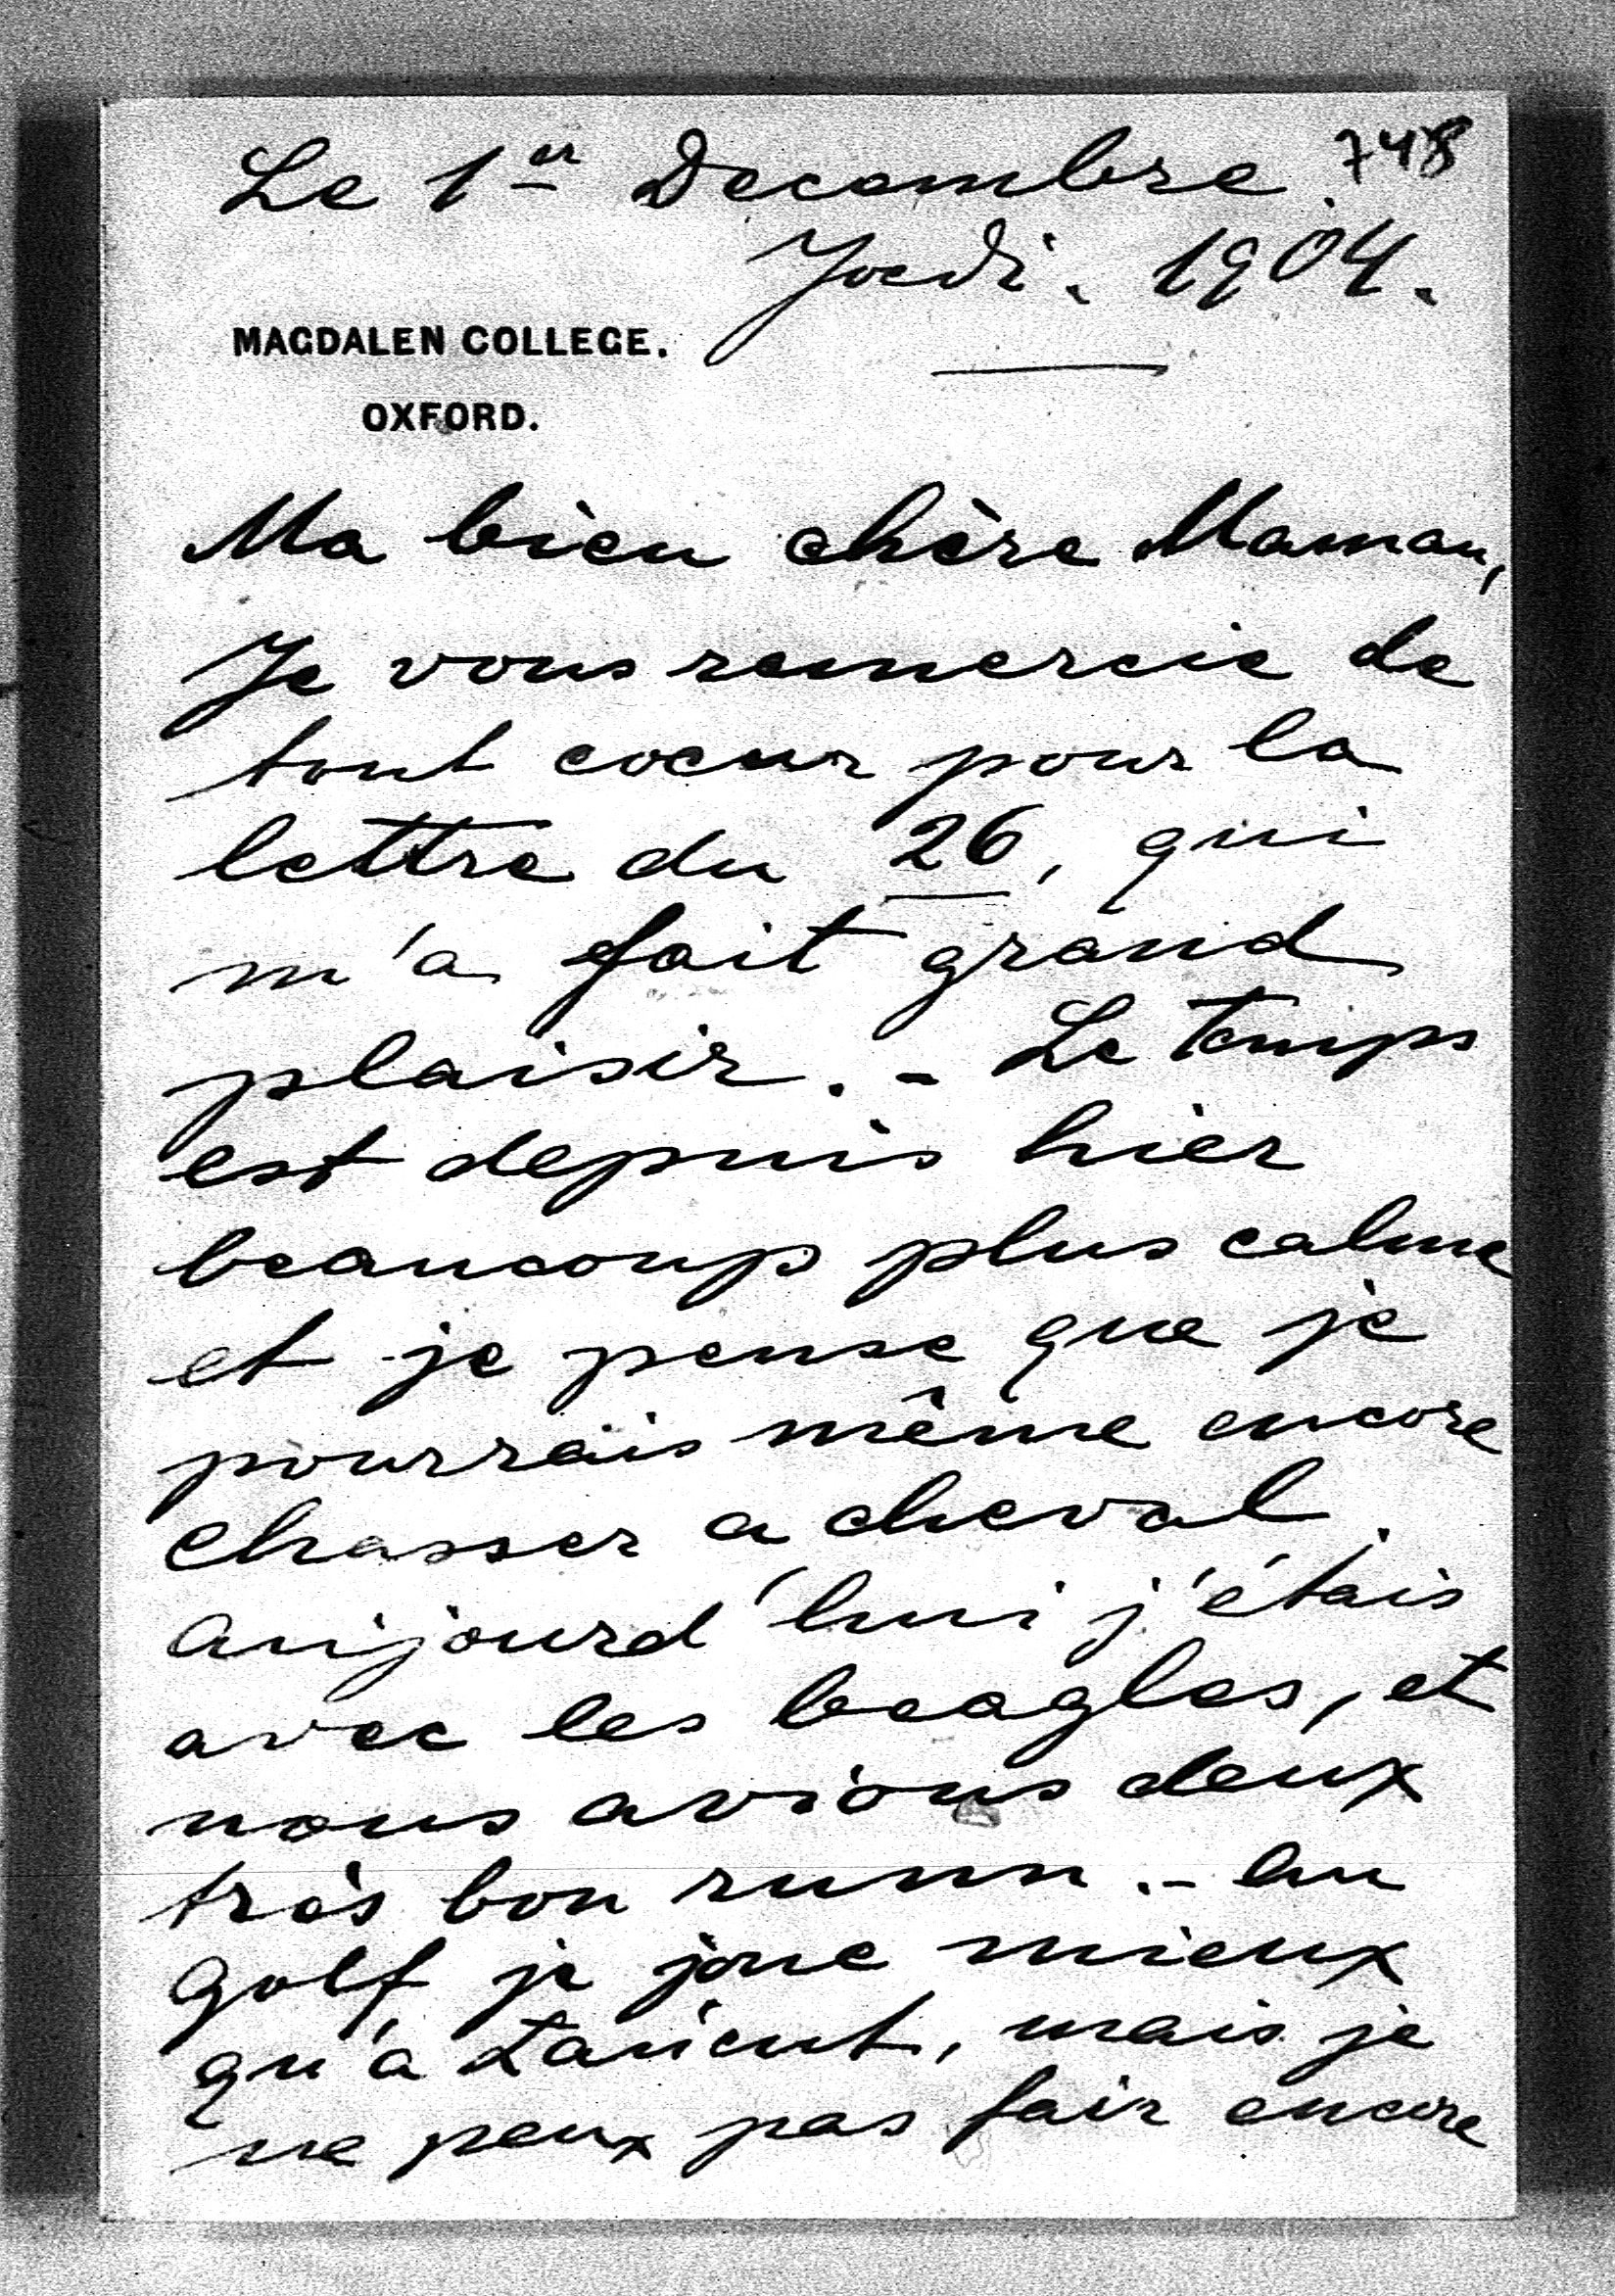 Le 1er Decembre. 748
Joedi. 1904.
MAGDALEN COLLEGE.
OXFORD.
Ma bien chère Maman,
Je vous remercie de
tout coeur pour la
lettre du 26, qui
m'a fait grand
plaisir. - Le temps
est depuis hier
beaucoup plus calme
et je pense que je
pourrais même encore
chasser a cheval.
Aujourd'hui j'étais
avec les beagles, et
nous avions deux
très bon runn. - Au
Golf je joue mieux
qu'à, mais je
ne peux pas fair encore